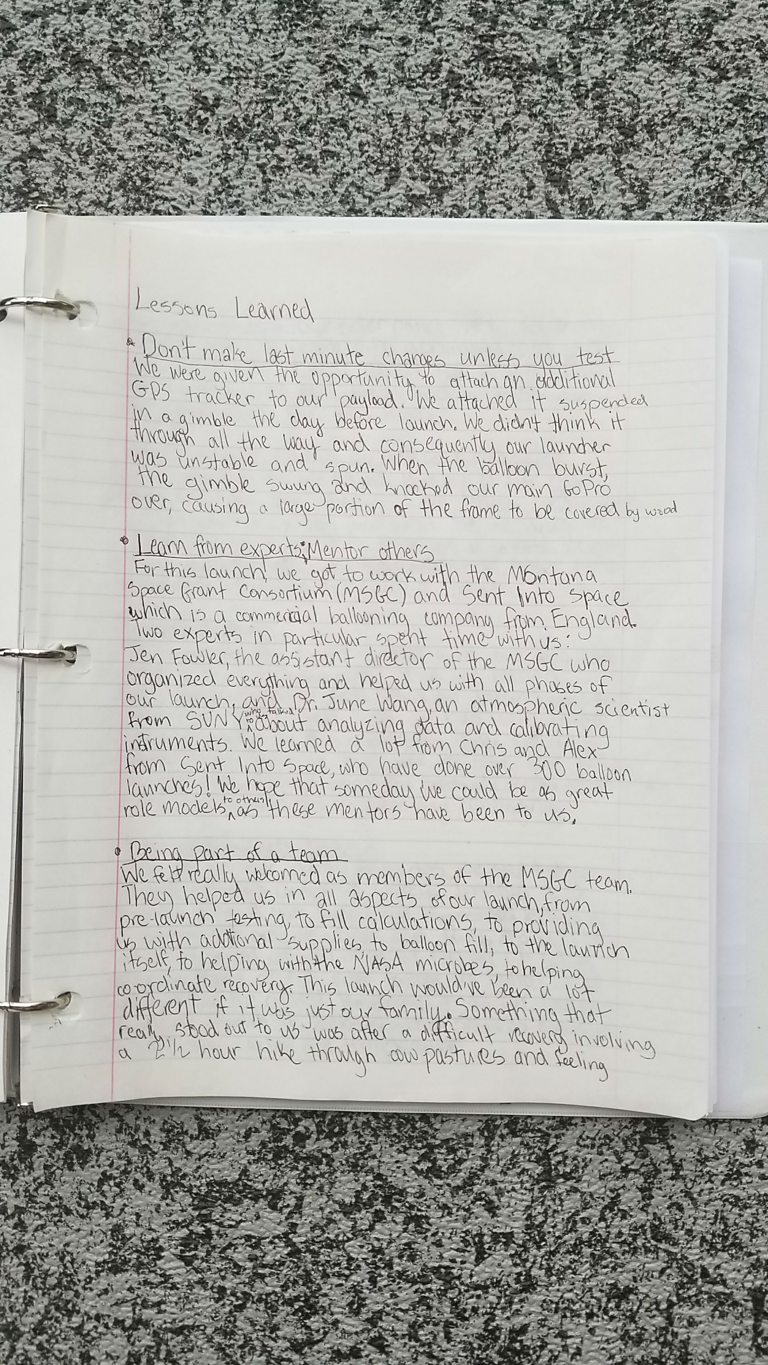 Lessons Learned
• Don't make last minute changes unless you test
We were given the opportunity to attach an additional
GPS tracker to our payload. We attached it suspended
in a gimble the day before launch. We didn't think it
through all the way and consequently our launcher
was unstable and spun. When the balloon burst,
the gimble swung and knocked our main GoPro
over, causing a large portion of the frame to be covered by wood
• Learn from experts; Mentor others
For this launch, we got to work with the Montana
Space Grant Consortium (MSGC) and Sent Into Space
which is a commercial ballooning company from England.
Two experts in particular spent time with us:
Jen Fowler, the assistant director of the MSGC who
organized everything and helped us with all phases of
our launch, and Dr. June Wang, an atmospheric scientist
from SUNY who talked to us about analyzing data and calibrating
instruments. We learned a lot from Chris and Alex
from Sent Into Space, who have done over 300 balloon
launches! We hope that someday we could be as great
role models to others as these mentors have been to us.
• Being part of a team
We felt really welcomed as members of the MSGC team.
They helped us in all aspects of our launch, from
pre-launch testing, to fill calculations, to providing
us with addtional supplies to balloon fill, to the launch
itself, to helping with the NASA microbes, to helping
co-ordinate recovery. This launch would've been a lot
different if it was just our family. Something that
really stood out to us was after a difficult recovery involving
a 2 1/2 hour hike through cow pastures and feeling